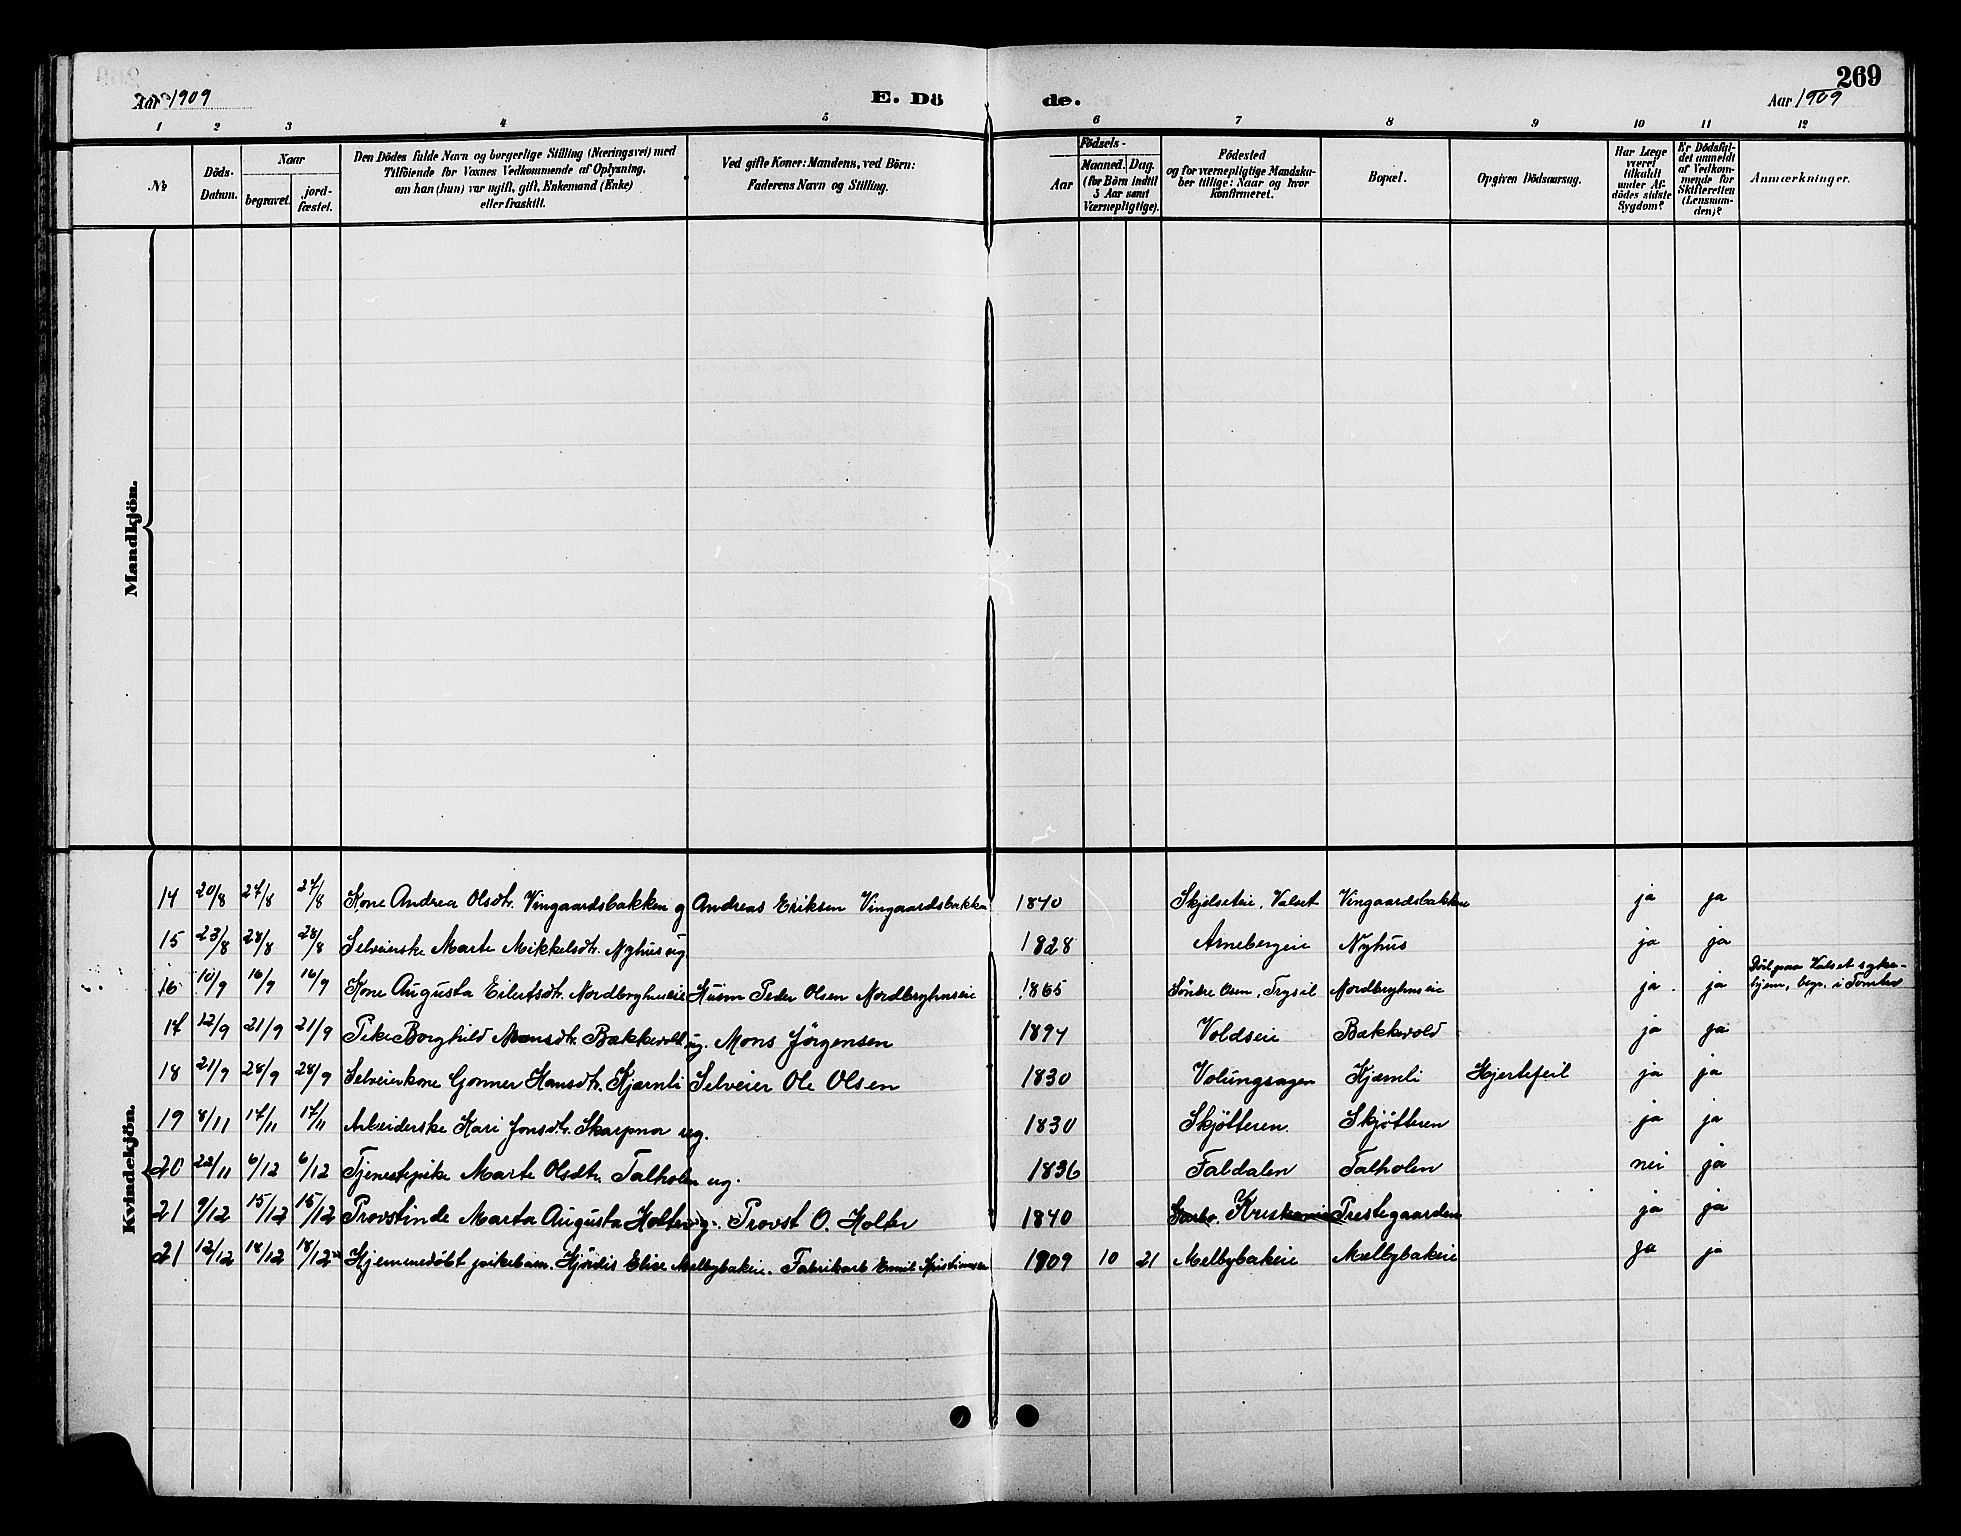 Aar 1909 E. Dö de. Aar 1909 269
1 2 3 4 5 6 7 8 9 10 11 12
No
Döds-Datum.
Naar
begravet.
jord-fæstet.
Den Dödes fulde Navn og borgerlige Stilling (Næringsvei) med
Tilföiende for Voxnes Vedkommende af Oplysning,
om han (hun) var ugift, gift, Enkemand (Enke)
eller fraskilt.
Ved gifte Koner: Mandens, ved Börn:
Faderens Navn og Stilling.
Födsels-
Aar
Maaned. Dag.
(for Börn indtil
5 Aar samt
Værnepligtige).
Födested
og for værnepligtige Mandska-
ber tillige: Naar og hvor
konfirmeret.
Bopæl.
Opgiven Dödsaarsag.
Har Læge
været
tilkaldt
under Af-
dödes sidste
Sygdom?
Er Dödsfal-
det anmeldt
af Vedkom-
mende for
Skifteretten
(Lensman-
den)?
Anmærkninger.
Mandkjön.
Kvindekjön.
14 20/8 27/8 27/8 Kone Andrea Olsdtr. Vingaardsbakken g Andreas Eriksen Vingaardsbakken 1840 Skjelseteie, Valset Vingaardsbakken ja ja
15 23/8 28/8 28/8 Selveierske Marte Mikkelsdtr. Nyhus ug. 1828 Arnebergeie Nyhus ja ja
16 10/9 16/9 16/9 Kone Augusta Eilertsdtr. Nordberghuseie Husm Peder Olsen Nordberghuseie 1865 Söndre Osen, Trysil Nordberghuseie ja ja Död paa Valset syke-
hjem, begr. i Tomter
17 12/9 21/9 21/9 Pike Borghild Monsdtr. Bækkevold ug. Mons Jörgensen 1897 Voldseie Bækkevold ja ja
18 21/9 28/9 28/9 Selveierkone Gonner Hansdtr. Kjærnli Selveier Ole Olsen 1830 Volungsagen Kjærnli Hjertefeil ja ja
19 8/11 17/11 17/11 Arbeiderske Kari Jonsdtr. Skarpnor ug. 1830 Skjötteren Skjötteren ja ja
20 22/11 6/12 6/12 Tjenestepike Marte Olsdtr. Talholen ug. 1836 Faldalen Talholen nei ja
21 9/12 15/12 15/12 Provstinde Marta Augusta Holter g. Provst O. Holter 1840 Kristiania Prestegaarden ja ja
21 12/12 18/12 18/12 Hjemmedöbt pikebarn. Hjördis Elise Melbybakeie. Fabrikarb Emil Kristiansen 1909 10 21 Melbybakeie Melbybakeie ja ja